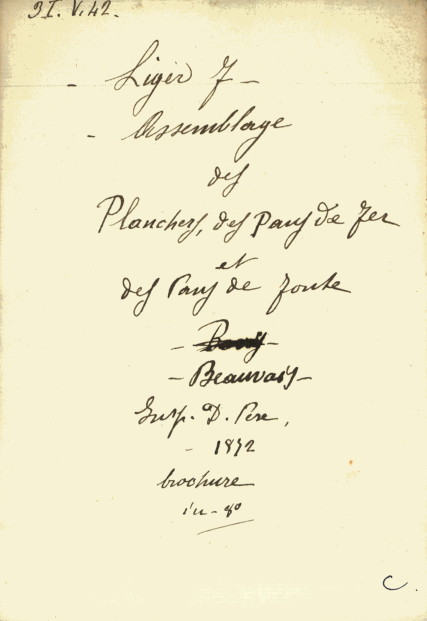 9I. V. 42.
- Liger F -
- Assemblage
des
Planchers, des Pans de Fer
et
des Pans de fonte
- Beauvais -
Imp. D. Pere,
- 1872
brochure
in-8°
C.